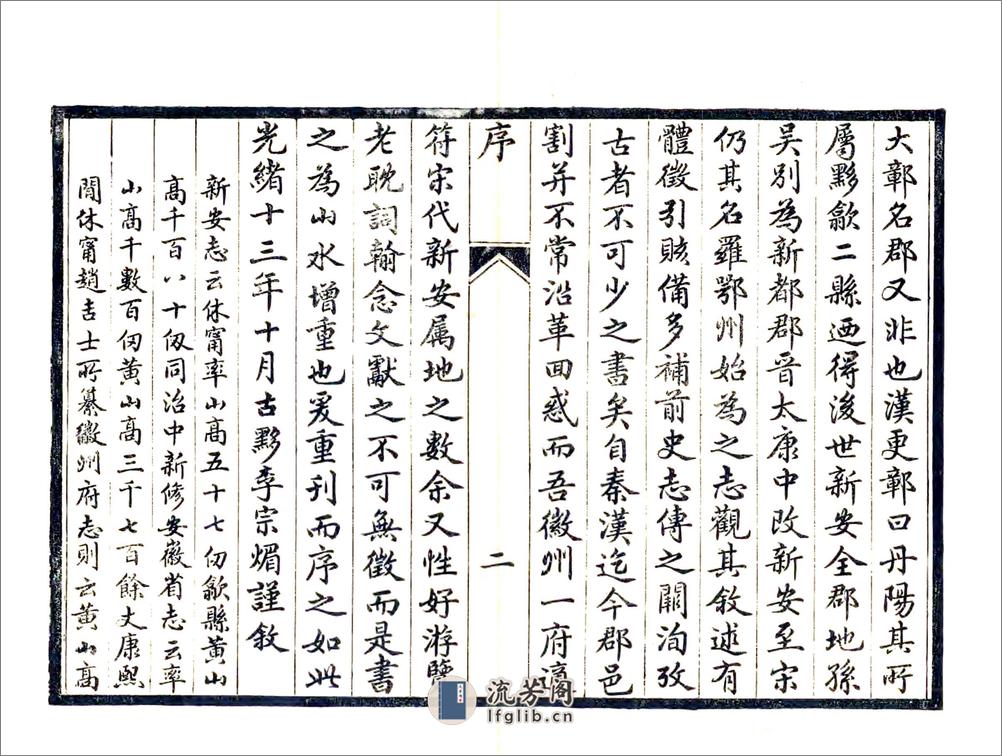 大鄣名郡又非也漢更鄣曰丹陽其所
屬黟歙二縣迺得後世新安全郡地孫
吳別為新都郡晉太康中改新安至宋
仍其名羅鄂州始為之志觀其敘述有
體徵引賅備多補前史志傳之闕洵攷
古者不可少之書矣自秦漢迄今郡邑
割并不常沿革回惑而吾徽州一府適
序
二
符宋代新安属地之數余又性好游覽
老眈詞翰念文獻之不可無徵而是書
之為山水增重也爰重刊而序之如此
光緒十三年十月古黟李宗煝謹敘
新安志云休甯率山高五十七仞歙縣黃山
高千百八十仭同治中新修安徽省志云率
山高千數百仞黃山高三千七百餘丈康熙
閒休甯趙吉士所纂徽州府志則云黃山高
流芳阁
lfglib.cn